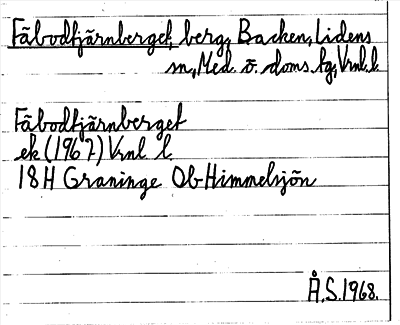 Fäbodtjärnberget, berg, Backen, Lidens
sn, Med. ö. doms. tg, Vrnl. l.
Fäbodtjärnberget
ek (1967) Vrnl l.
18H Graninge Ob Himmelsjön
Å.S. 1968.